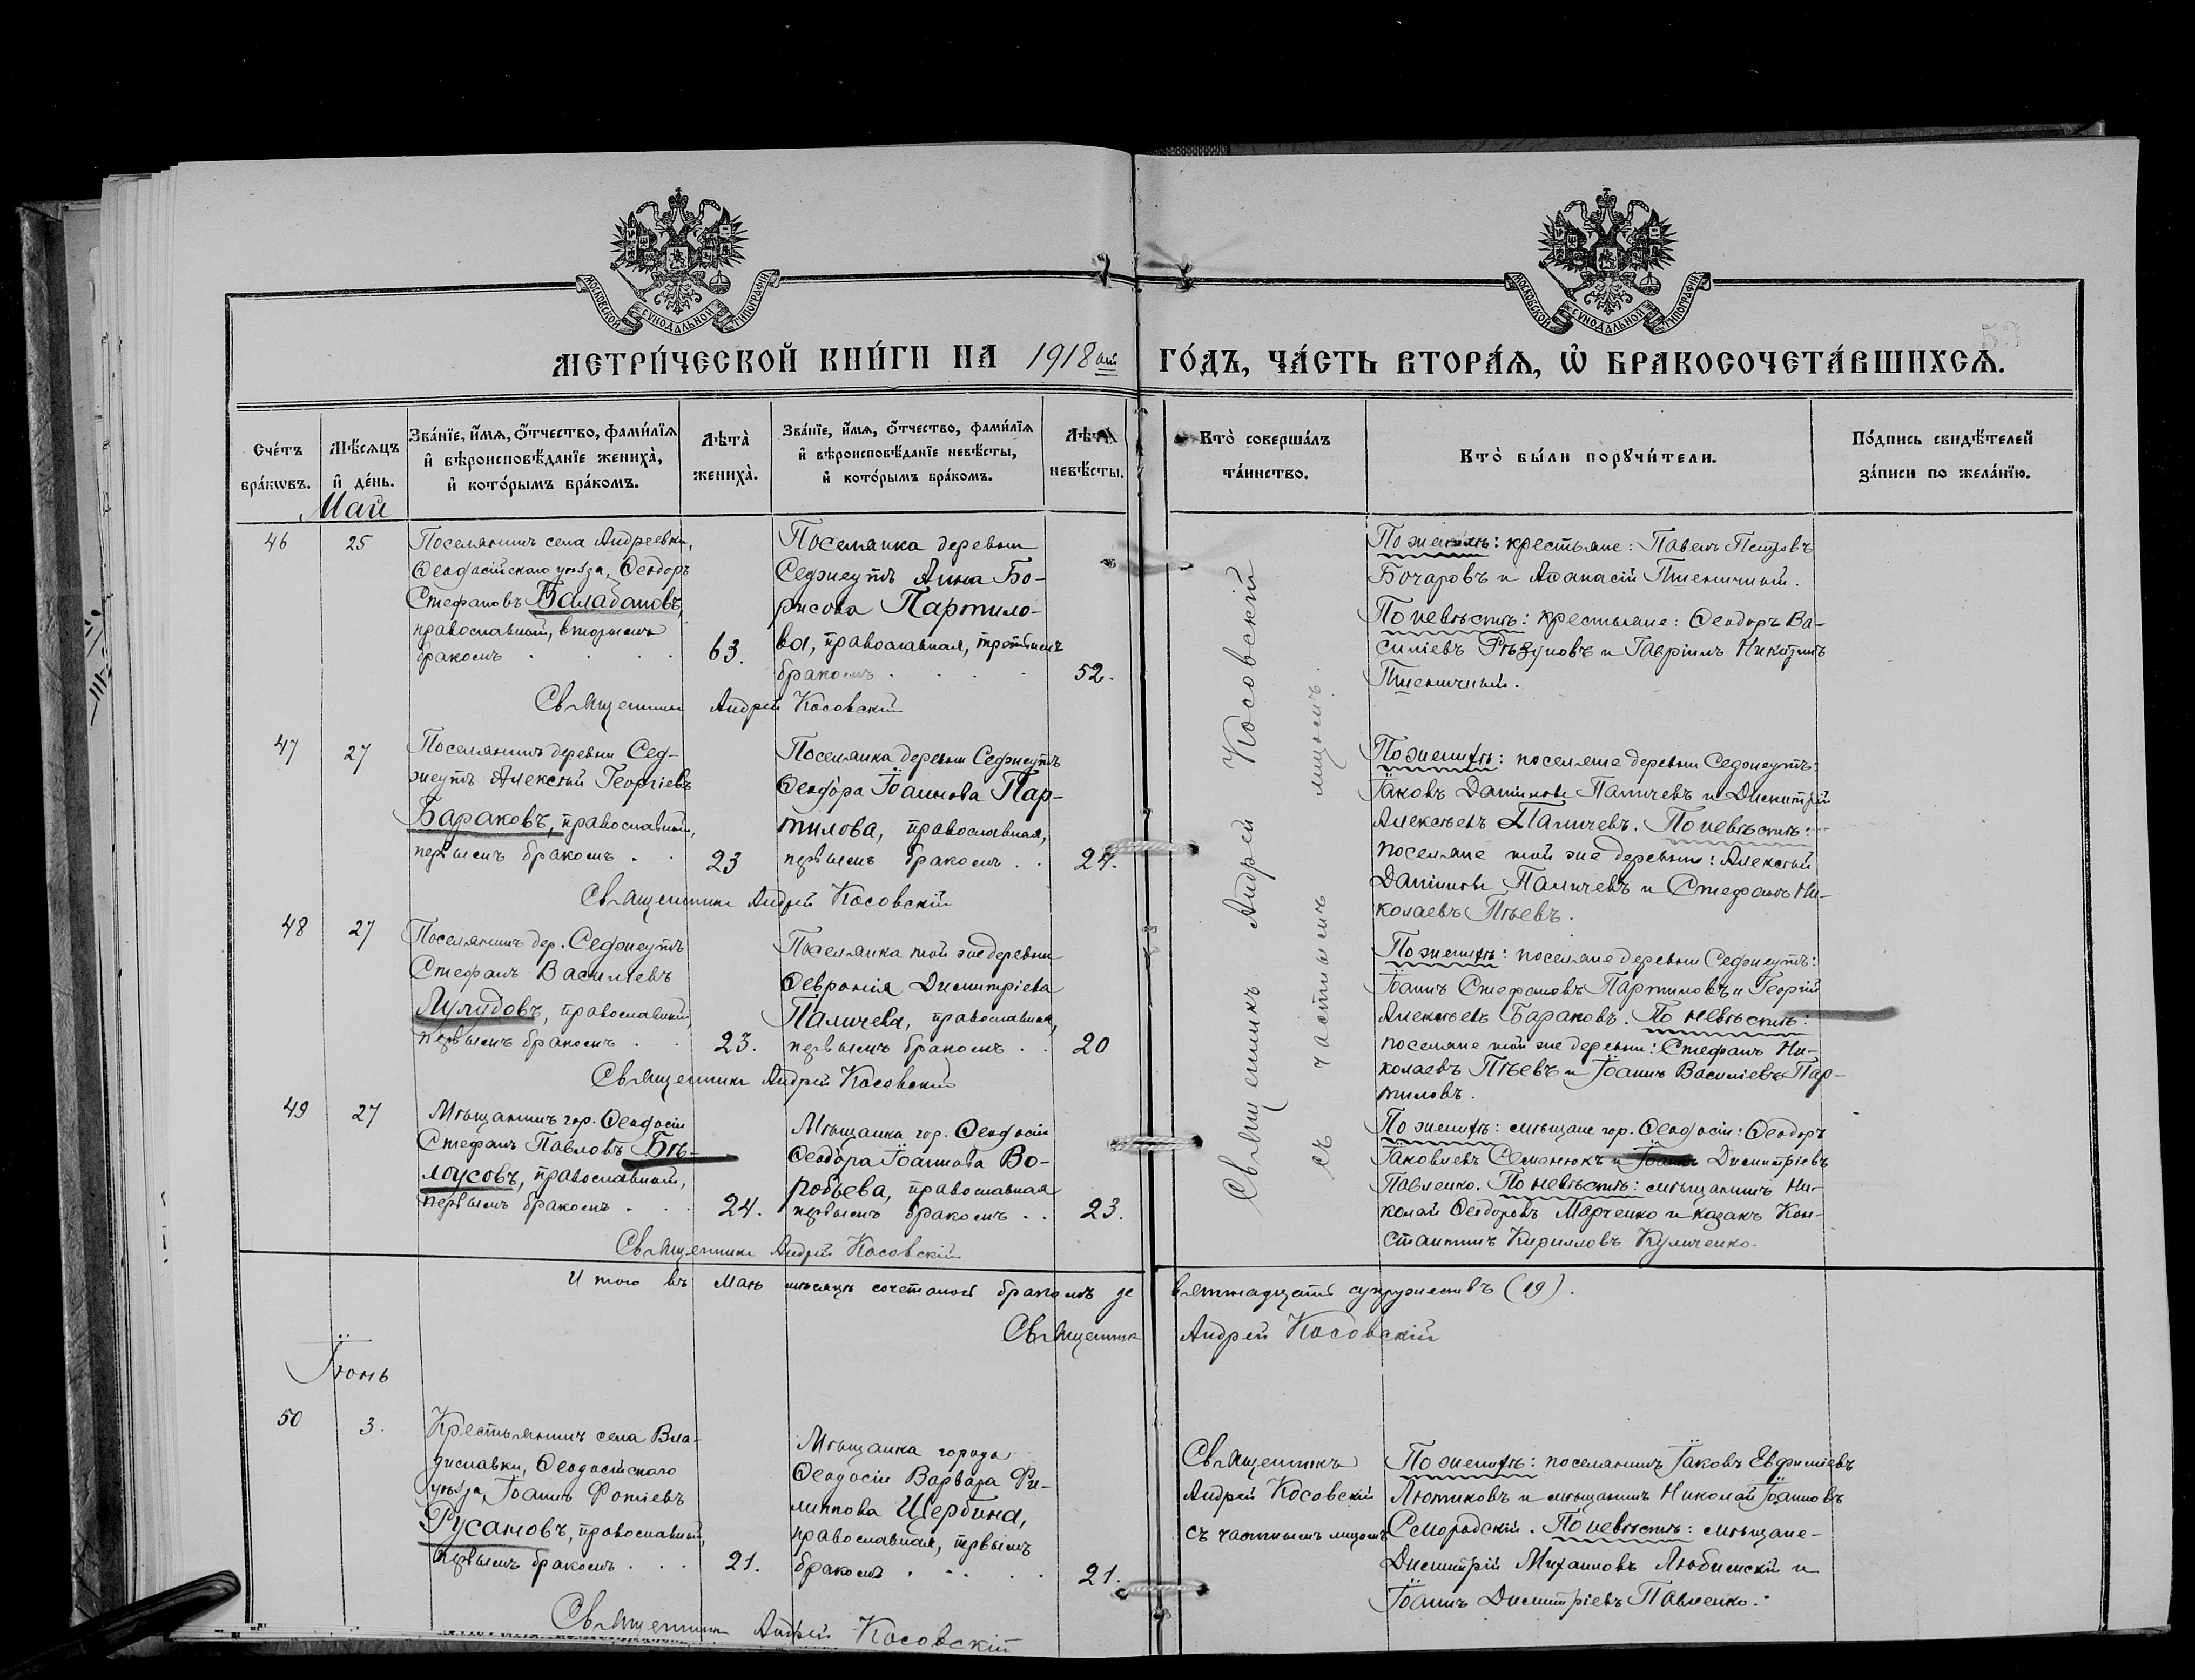 МОСКОВСКОЙ СѴНОДАЛЬНОЙ ТИПОГРАФІИ
МОСКОВСКОЙ СѴНОДАЛЬНОЙ ТИПОГРАФІИ
МЕТРИ́ЧЕСКОЙ КНИ́ГИ НА 1918 ый ГО́ДЪ, ЧА́СТЬ ВТОРА́Я, Ѡ҆ БРАКОСОЧЕТА́ВШИХСЯ.
Сче́тъ бра́кѡвъ.
Мѣ́сяцъ и҆ де́нь.
Зва́нїе, и҆́мя, ѻ҆́тчество, фами́лїя
и҆ вѣроисповѣ́данїе жениха̀,
и҆ кото́рымъ бра́комъ.
Лѣта̀ жениха̀.
Зва́нїе, и҆́мя, ѻ҆́тчество, фами́лїя
и҆ вѣроисповѣ́данїе невѣ́сты,
и҆ кото́рымъ бра́комъ.
Лѣта̀ невѣ́сты.
Кто̀ соверша́лъ
та́инство.
Кто̀ бы́ли порꙋчи́тели.
По́дпись свидѣ́телей
за́писи по жела́нїю.
Май
46
25
Поселянинъ села Андреевки,
Ѳеодосійскаго уѣзда, Ѳеодоръ
Стефановъ Балабановъ,
православный, вторымъ
бракомъ . . . .
63.
Поселянка деревни
Седжеутъ Анна Бо-
рисова Партило-
ва, православная, третьимъ
бракомъ . . .
52.
Священникъ Андрей Косовскій
По женихѣ: крестьяне: Павелъ Петровъ
Бочаровъ и Аѳанасій Пшеничный.
По невѣстѣ: крестьяне: Ѳеодоръ Ва-
силіевъ Рѣзуновъ и Гавріилъ Никитинъ
Пшеничный.
Священникъ Андрей Косовскій
съ частнымъ лицомъ.
47
27
Поселянинъ деревни Сед-
жеутъ Алексѣй Георгіевъ
Бараковъ, православный,
первымъ бракомъ . .
23
Поселянка деревни Седжеутъ
Ѳеодора Іоаннова Пар-
тилова, православная,
первымъ бракомъ . .
24.
Священникъ Андрей Косовскій
По женихѣ: поселяне деревни Седжеутъ:
Іаковъ Даниловъ Паличевъ и Димитрій
Алексѣевъ Паличевъ. По невѣстѣ:
поселяне той же деревни: Алексѣй
Даниловъ Паличевъ и Стефанъ Ни-
колаевъ Пѣевъ.
48
27
Поселянинъ дер. Седжеутъ
Стефанъ Василіевъ
Лулудовъ, православный,
первымъ бракомъ . .
23.
Поселянка той же деревни
Ѳевронія Димитріева
Паличева, православная,
первымъ бракомъ . .
20
Священникъ Андрей Косовскій
По женихѣ: поселяне деревни Седжеутъ:
Іоаннъ Стефановъ Партиловъ и Георгій
Алексѣевъ Бараковъ. По невѣстѣ:
поселяне той же деревни: Стефанъ Ни-
колаевъ Пѣевъ и Іоаннъ Василіевъ Пар-
тиловъ.
49
27
Мѣщанинъ гор. Ѳеодосіи
Стефанъ Павловъ Бѣ-
лоусовъ, православный,
первымъ бракомъ . . .
24.
Мѣщанка гор. Ѳеодосіи
Ѳеодора Іоаннова Во-
робьева, православная
первымъ бракомъ . .
23.
Священникъ Андрей Косовскій
По женихѣ: мѣщане гор. Ѳеодосіи: Ѳеодоръ
Іаковлевъ Семенюкъ и Іоаннъ Димитріевъ
Павленко. По невѣстѣ: мѣщанинъ Ни-
колай Ѳеодоровъ Марченко и казакъ Кон-
стантинъ Кирилловъ Куличенко.
Итого въ маѣ мѣсяцѣ сочеталось бракомъ девятнадцать супружествъ (19).
Священникъ Андрей Косовскій
Іюнь
50
3.
Крестьянинъ села Вла-
диславки, Ѳеодосійскаго
уѣзда, Іоаннъ Фотіевъ
Русановъ, православный,
первымъ бракомъ . . .
21.
Мѣщанка города
Ѳеодосіи Варвара Фи-
липпова Щербина,
православная, первымъ
бракомъ . . . .
21.
Священникъ
Андрей Косовскій
съ частнымъ лицомъ
По женихѣ: поселянинъ Іаковъ Евфиміевъ
Лютиковъ и мѣщанинъ Николай Іоанновъ
Смородскій. По невѣстѣ: мѣщане
Димитрій Михаиловъ Любимскій и
Іоаннъ Димитріевъ Павленко.
Священникъ Андрей Косовскій